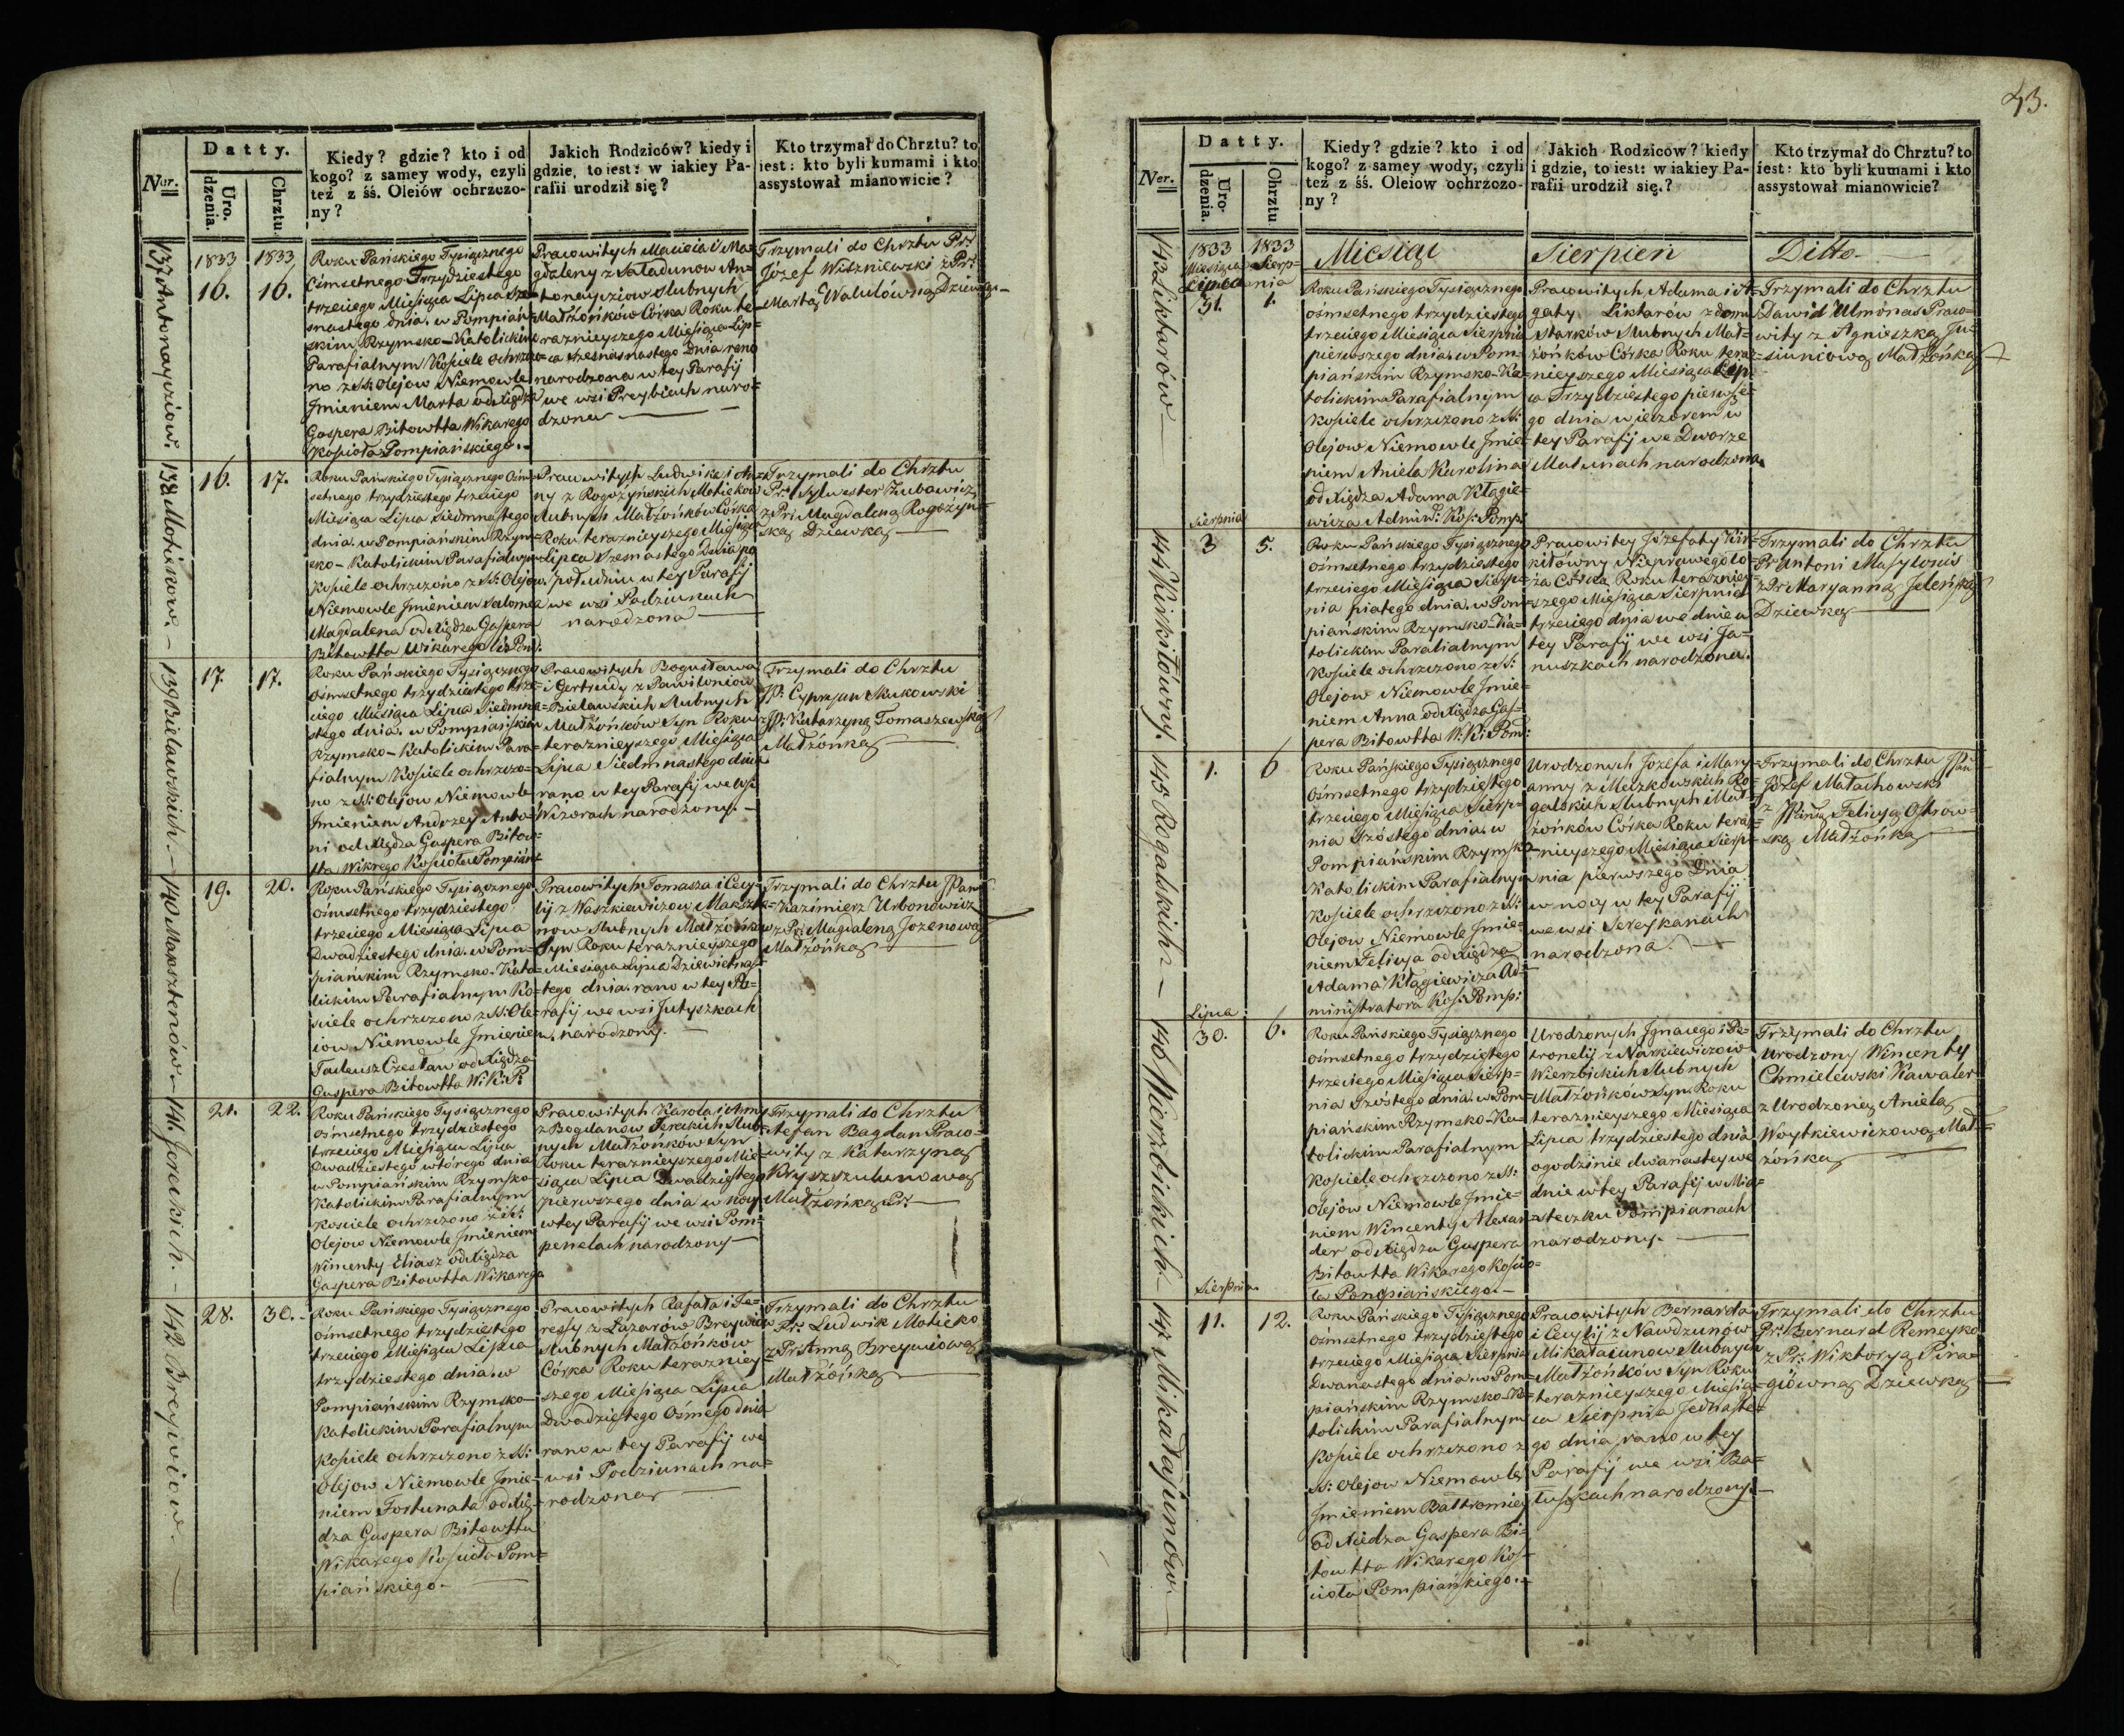 43.
Ner.
Datty.
Uro.
dzenia.
Chrztu.
Kiedy? gdzie? kto i od
kogo? z samey wody, czyli
też z śś. Oleiów ochrzczo-
ny?
Jakich Rodziców? kiedy i
gdzie, to iest: w iakiey Pa-
rafii urodził się?
Kto trzymał do Chrztu? to
iest: kto byli kumami i kto
assystował mianowicie?
137 Antonayziow.
1833
16.
1833
16.
Roku Pańskiego Tysiącznego
Ośmsetnego Trzydziestego
trzeciego Miesiąca Lipca sze-
snastego dnia. w Pompiań-
skim Rzymsko-Katolickim
Parafialnym Kościele ochrzczo-
no z SS. Olejow Niemowle
Imieniem Marta od Xiędza
Gaspera Bitowtta Wikarego
Kościoła Pompiańskiego.
Pracowitych Macieia i Ma-
gdaleny z Saładunow An-
tonayziow slubnych
Małżonków Córka Roku te-
raznieyszego Miesiąca Lip-
ca szesnastego Dnia rano
narodzona w tey Parafij
we wsi Preybiach naro-
dzona
Trzymali do Chrztu Pr:
Józef Wiszniewski z Pr:
Martą Walulówną Dziewką
158 Motiekow.
16.
17.
Roku Pańskiego Tysiącznego Ośm-
setnego trzydziestego trzeciego
Miesiąca Lipca siedmnastego
dnia. w Pompiańskim Rzym-
sko-Katolickim Parafialnym
Kościele ochrzczono z SS: Olejow
Niemowle Imieniem Salomea
Magdalena od Xiędza Gaspera
Bitowtta Wikarego K: Pom:
Pracowitych Ludwika i An-
ny z Rogożyńskich Motiekow
slubnych Małżonków Córka
Roku teraznieyszego Miesiąca
Lipca szesnastego Dnia po
południu w tey Parafij
we wsi Podziunach
narodzona
Trzymali do Chrztu
Pr: Sylwester Zubowicz
z Pr: Magdaleną Rogożyn-
ską Dziewką
139 Bielawskich.
17.
17.
Roku Pańskiego Tysiącznego
Ośmsetnego trzydziestego trze-
ciego Miesiąca Lipca Siedmna-
stego dnia. w Pompiańskim
Rzymsko-Katolickim Para-
fialnym Kościele ochrzczo-
no z SS: Olejow Niemowle
Imieniem Andrzey Anto-
ni od Xiędza Gaspera Bitow-
tta Wikrego Kościoła Pompiańs
Pracowitych Bogusława
i Gertrudy z Pawiloniow
Bielawskich slubnych
Małżonków Syn Roku
teraznieyszego Miesiąca
Lipca Siedmnastego dnia
rano w tey Parafij we wsi
Wizorach narodzony.
Trzymali do Chrztu
JP: Cypryan Mukowski
z JP: Katarzyną Tomaszewską
Małżonką
140 Maksztenów.
19.
20.
Roku Pańskiego Tysiącznego
ośmsetnego trzydziestego
trzeciego Miesiąca Lipca
Dwadziestego dnia. w Pom-
piańskim Rzymsko-Kato-
lickim Parafialnym Ko-
ściele ochrzczono z SS: Ole-
iow Niemowle Imieniem
Tadeusz Czesław od Xiędza
Gaspera Bitowtta W. K: P:
Pracowitych Tomasza i Cecy-
lij z Waszkiewiczow Makszte-
now slubnych Małżonków
Syn Roku teraznieyszego
Miesiąca Lipca Dziewiętnas-
tego dnia. rano w tey Pa-
rafij we wsi Jutyszkach
narodzony.
Trzymali do Chrztu JPan
Kazimierz Urbonowicz
z Pr: Magdaleną Jozenową
Małżonką
141. Jereckich.
21.
22.
Roku Pańskiego Tysiącznego
ośmsetnego trzydziestego
trzeciego Miesiąca Lipca
Dwadziestego wtorego dnia
w Pompiańskim Rzymsko-
Katolickim Parafialnym
Kościele ochrzczono z SS:
Olejow Niemowle Imieniem
Wincenty Eliasz od Xiędza
Gaspera Bitowtta Wikarego
Pracowitych Karola i Anny
z Bogdanow Jereckich slub-
nych Małżonków Syn
Roku teraznieyszego Mie-
siąca Lipca Dwadziestego
pierwszego dnia w nocy
w tey Parafij we wsi Pom-
penelach narodzony
Trzymali do Chrztu
Stefan Bagdan Praco-
wity z Katarzyną
Kryszszulunową
Małżonką Pr:
142 Breywiow.
28.
30.
Roku Pańskiego Tysiącznego
ośmsetnego trzydziestego
trzeciego Miesiąca Lipca
trzydziestego dnia. w
Pompiańskim Rzymsko-
Katolickim Parafialnym
Kościele ochrzczono z SS:
Olejow Niemowle Imie-
niem Fortunata od Xię-
dza Gaspera Bitowtta
Wikarego Kościoła Pom-
piańskiego.
Pracowitych Rafała i Te-
ressy z Łazarów Breywiow
slubnych Małżonków
Córka Roku terazniey-
szego Miesiąca Lipca
Dwadziestego Ośmego dnia
rano w tey Parafij we
wsi Podziunach na-
rodzona
Trzymali do Chrztu
Pr: Ludwik Motieko
z Pr: Anną Breywiową
Małżonką
Ner.
Datty.
Uro-
dzenia.
Chrztu
Kiedy? gdzie? kto i od
kogo? z samey wody, czyli
też z śś. Oleiow ochrzczo-
ny?
Jakich Rodziców? kiedy
i gdzie, to iest: w iakiey Pa-
rafii urodził się.?
Kto trzymał do Chrztu? to
iest: kto byli kumami i kto
assystował mianowicie?
143 Liktarów
1833
Miesiąca
Lipca
31.
1833
Sierp-
nia
1.
Miesiąc Sierpień Ditto
Roku Pańskiego Tysiącznego
ośmsetnego trzydziestego
trzeciego Miesiąca Sierpnia
pierwszego dnia. w Pom-
piańskim Rzymsko-Ka-
tolickim Parafialnym
Kościele ochrzczono z SS:
Olejow Niemowle Imie-
niem Aniela Karolina
od Xiędza Adama Kłągie-
wicza Admin: Koś: Pomp:
Pracowitych Adama i A-
gaty Liktarów z domu
Starków slubnych Mał-
żonków Córka Roku tera-
znieyszego Miesiąca Lip-
ca Trzydziestego pierwsze-
go dnia wieczorem w
tey Parafij we Dworze
Małunach narodzona
Trzymali do Chrztu
Dawid Ulmonas Praco-
wity z Agnieszką Ju-
siuniową Małżonką
144 Kirkiłówny.
Sierpnia
3
5.
Roku Pańskiego Tysiącznego
ośmsetnego trzydziestego
trzeciego Miesiąca Sierp-
nia piatego dnia. w Pom-
piańskim Rzymsko-Ka-
tolickim Parafialnym
Kościele ochrzczono z SS:
Olejow Niemowle Imie-
niem Anna od Xiędza Gas-
pera Bitowtta W: K: Pom:
Pracowitey Józefaty Kir-
kiłówny Nieprawego ło-
ża Córka Roku terazniey-
szego Miesiąca Sierpnia
trzeciego dnia we dnie w
tey Parafij we wsi Ja-
nuszkach narodzona.
Trzymali do Chrztu
Pr Antoni Masylonis
z Pr Maryanną Jeleńską
Dziewką
145 Rogalskich
1.
6
Roku Pańskiego Tysiącznego
Ośmsetnego trzydziestego
trzeciego Miesiąca Sierp-
nia Szóstego dnia. w
Pompiańskim Rzymsko-
Katolickim Parafialnym
Kościele ochrzczono z SS:
Olejow Niemowle Imie-
niem Felicya od Xiędza
Adama Kłągiewicza Ad-
ministratora Koś: Pomp:
Urodzonych Józefa i Mary-
anny z Meszkowskich Ro-
galskich slubnych Mał-
żonków Córka Roku teraz-
nieyszego Miesiąca Sierp-
nia pierwszego Dnia
w nocy w tey Parafij
we wsi Sereykanach
narodzona.
Trzymali do Chrztu JPan
Józef Małachowski
z JPanią Felicyą Ostrow-
ską Małżonką
146 Wierzbickich
Lipca
30.
6.
Roku Pańskiego Tysiącznego
ośmsetnego trzydziestego
trzeciego Miesiąca Sierp-
nia Szóstego dnia. w Pom-
piańskim Rzymsko-Ka-
tolickim Parafialnym
Kościele ochrzczono z SS:
Olejów Niemowle Imie-
niem Wincenty Alexan-
der od Xiędza Gaspera
Bitowtta Wikarego Kościo-
ła Pompiańskiego.
Urodzonych Ignacego i Pe-
tronelij z Narkiewiczow
Wierzbickich slubnych
Małżonków Syn Roku
teraznieyszego Miesiąca
Lipca trzydziestego dnia
o godzinie dwanastey we
dnie w tey Parafij w Mia-
steczku Pompianach
narodzony.
Trzymali do Chrztu
Urodzony Wincenty
Chmielewski Kawaler
z Urodzoną Anielą
Woytkiewiczową Mał-
żonką
147 Mikałajunow
Sierpnia
11.
12.
Roku Pańskiego Tysiącznego
Ośmsetnego trzydziestego
trzeciego Miesiąca Sierpnia
Dwanastego dnia w Pom-
piańskim Rzymsko-Ka-
tolickim Parafialnym
Kościele ochrzczono z
SS: Olejow Niemowle
Imieniem Bałtromiey
od Xiedza Gaspera Bi-
towtta Wikarego Koś-
cioła Pompiańskiego.
Pracowitych Bernarda
i Cecylij z Nawdzunów
Mikałaiunow slubnych
Małżonków Syn Roku
teraznieyszego Miesią-
ca Sierpnia Jednaste-
go dnia rano w tey
Parafij we wsi Ba-
tuszach narodzony.
Trzymali do Chrztu
Pr: Bernard Remeyko
z Pr: Wiktoryą Pira-
giówną Dziewką